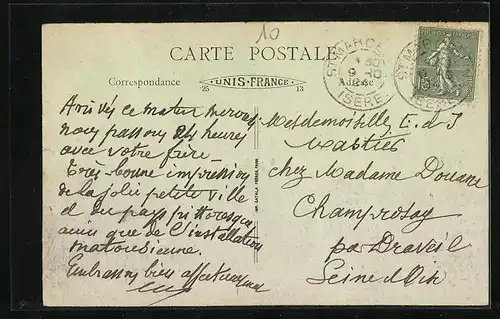 10
CARTE POSTALE
Correspondance
UNIS-FRANCE
25 13
Adresse
ST MARCE
9 -10
ISERE
15
Arrivés ce matin
nous passons 24 heures
avec votre frère.
Très bonne impression
de la jolie petite ville
et du pays pittoresque
ainsi que de l'installation
Embrassons bien affectueusement
IMP. CATALA FRÈRES, PARIS
Mesdemoiselles E. et J
chez Madame Douane
Champrosay
par Draveil
Seine et Oise